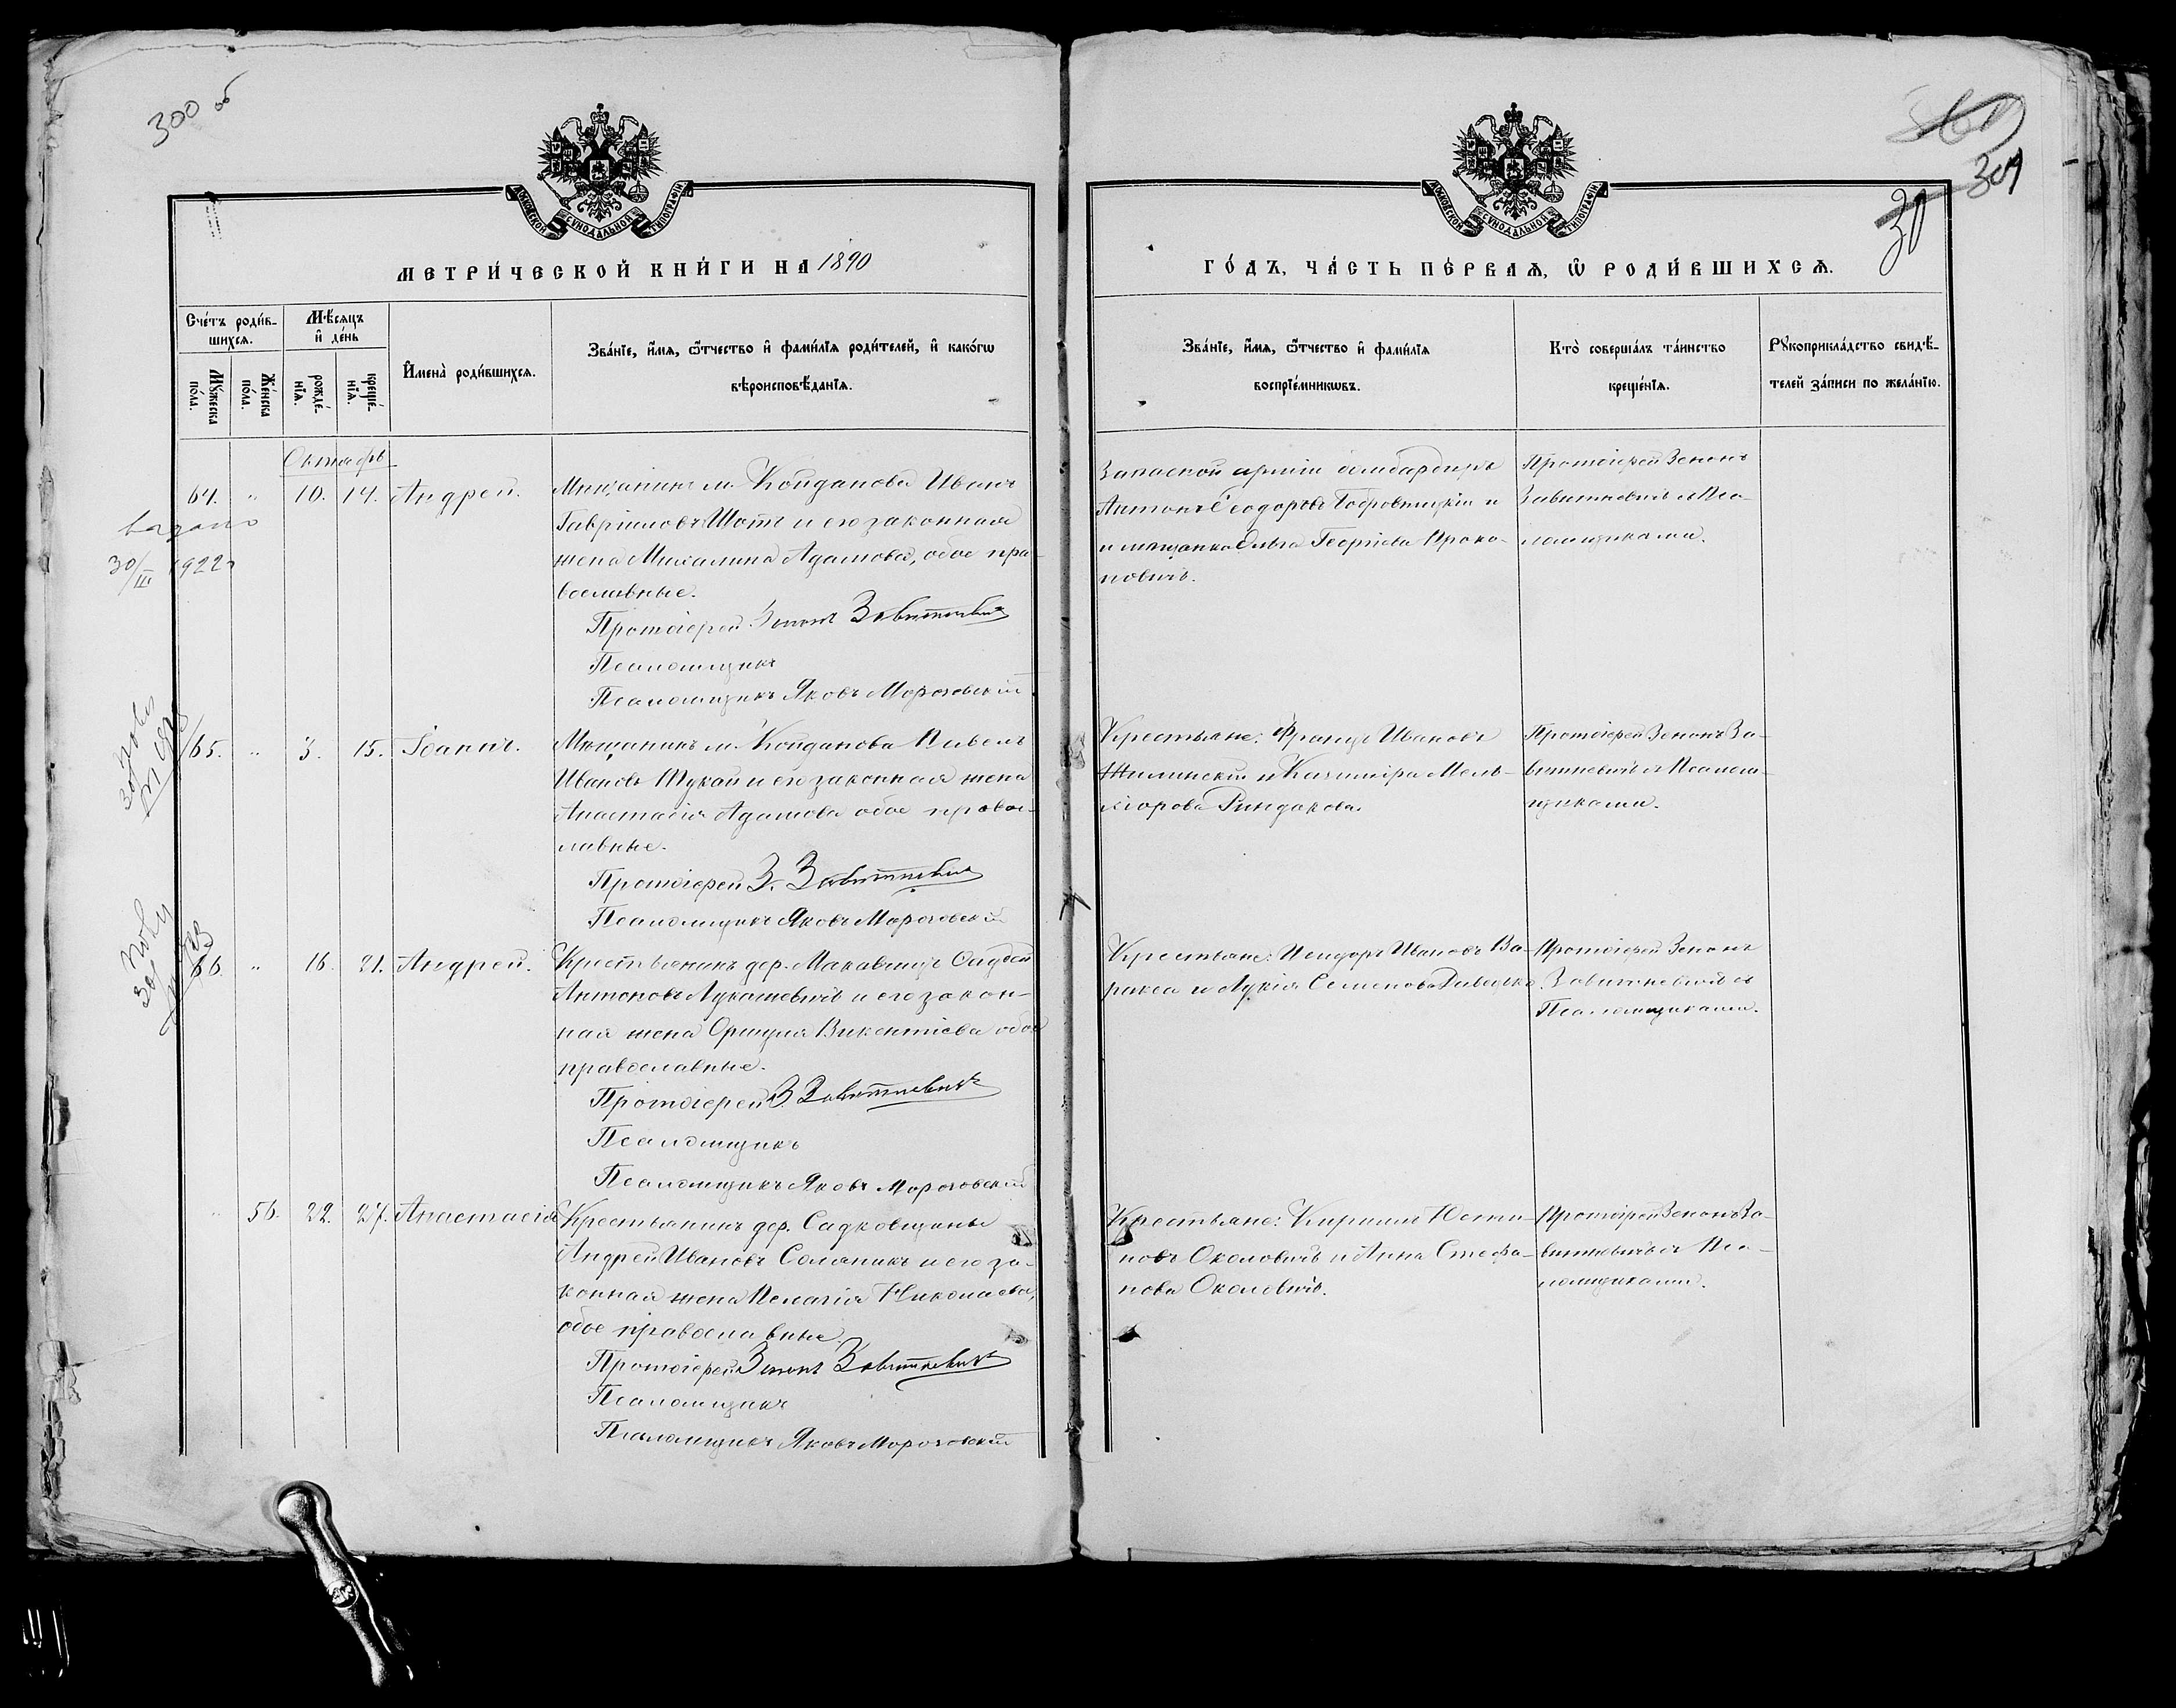 300 об
301
30
МОСКОВСКОЙ СѴНОДАЛЬНОЙ ТИПОГРАФІИ
МЕТРИ́ЧЕСКОЙ КНИ́ГИ НА 1890
Сче́тъ роди́в-
шихсѧ.
Мꙋ́жеска по́ла.
Же́нска по́ла.
Мѣ́сѧцъ и҆ де́нь
рожде́-
нїѧ.
креще́-
нїѧ.
И҆мена̀ роди́вшихсѧ.
Зва́нїе, и҆́мѧ, ѻ҆́тчество и҆ фами́лїѧ роди́телей, и҆ како́гѡ
вѣроисповѣ́данїѧ.
Октябрь
64. " 10. 14. Андрей.
30/III 1922 г
Мѣщанинъ м. Койданова Иванъ
Гавріиловъ Шотъ и его законная
жена Михалина Адамова, обое пра-
вославные.
Протоіерей Зенонъ Завитневичъ
Псаломщикъ
Псаломщикъ Яковъ Морозовскій
65. " 3. 15. Іоаннъ.
Мѣщанинъ м. Койданова Павелъ
Ивановъ Тукай и его законная жена
Анастасія Адамова обое правос-
лавные.
Протоіерей З. Завитневичъ
Псаломщикъ Яковъ Морозовскій
66. " 16. 21. Андрей.
Крестьянинъ дер. Макавчицъ Фаддей
Антоновъ Лукашевичъ и его закон-
ная жена Оршуля Викентіева обое
православные.
Протоіерей З. Завитневичъ
Псаломщикъ
Псаломщикъ Яковъ Морозовскій
" 56. 22. 27. Анастасія
Крестьянинъ дер. Садковщины
Андрей Ивановъ Солоникъ и его за-
конная жена Пелагія Николаева,
обое православные.
Протоіерей Зенонъ Завитневичъ
Псаломщикъ
Псаломщикъ Яковъ Морозовскій
МОСКОВСКОЙ СѴНОДАЛЬНОЙ ТИПОГРАФІИ
ГО́ДЪ, ЧА́СТЬ ПЕ́РВАѦ, Ѡ҆ РОДИ́ВШИХСѦ.
Зва́нїе, и҆́мѧ, ѻ҆́тчество и҆ фами́лїѧ
воспрїе́мникѡвъ.
Кто̀ соверша́лъ та́инство
креще́нїѧ.
Рꙋкоприкла́дство свидѣ́-
телей за́писи по жела́нїю.
Запасной арміи бомбардиръ
Антонъ Ѳеодоровъ Бобровницкій и
и мѣщанка Ольга Георгіева Проко-
повичъ.
Протоіерей Зенонъ
Завитневичъ съ Пса-
ломщиками.
Крестьяне: Францъ Ивановъ
Жилинскій и Казиміра Мель-
хіорова Риндакова.
Протоіерей Зенонъ За-
витневичъ съ Псалом-
щиками.
Крестьяне: Исидоръ Ивановъ Ва-
ракса и Лукія Семенова
Протоіерей Зенонъ
Завитневичъ съ
Псаломщиками.
Крестьяне: Кириллъ Юсти-
новъ Околовичъ и Анна Стефа-
нова Околовичъ.
Протоіерей Зенонъ За-
витневичъ съ Пса-
ломщиками.